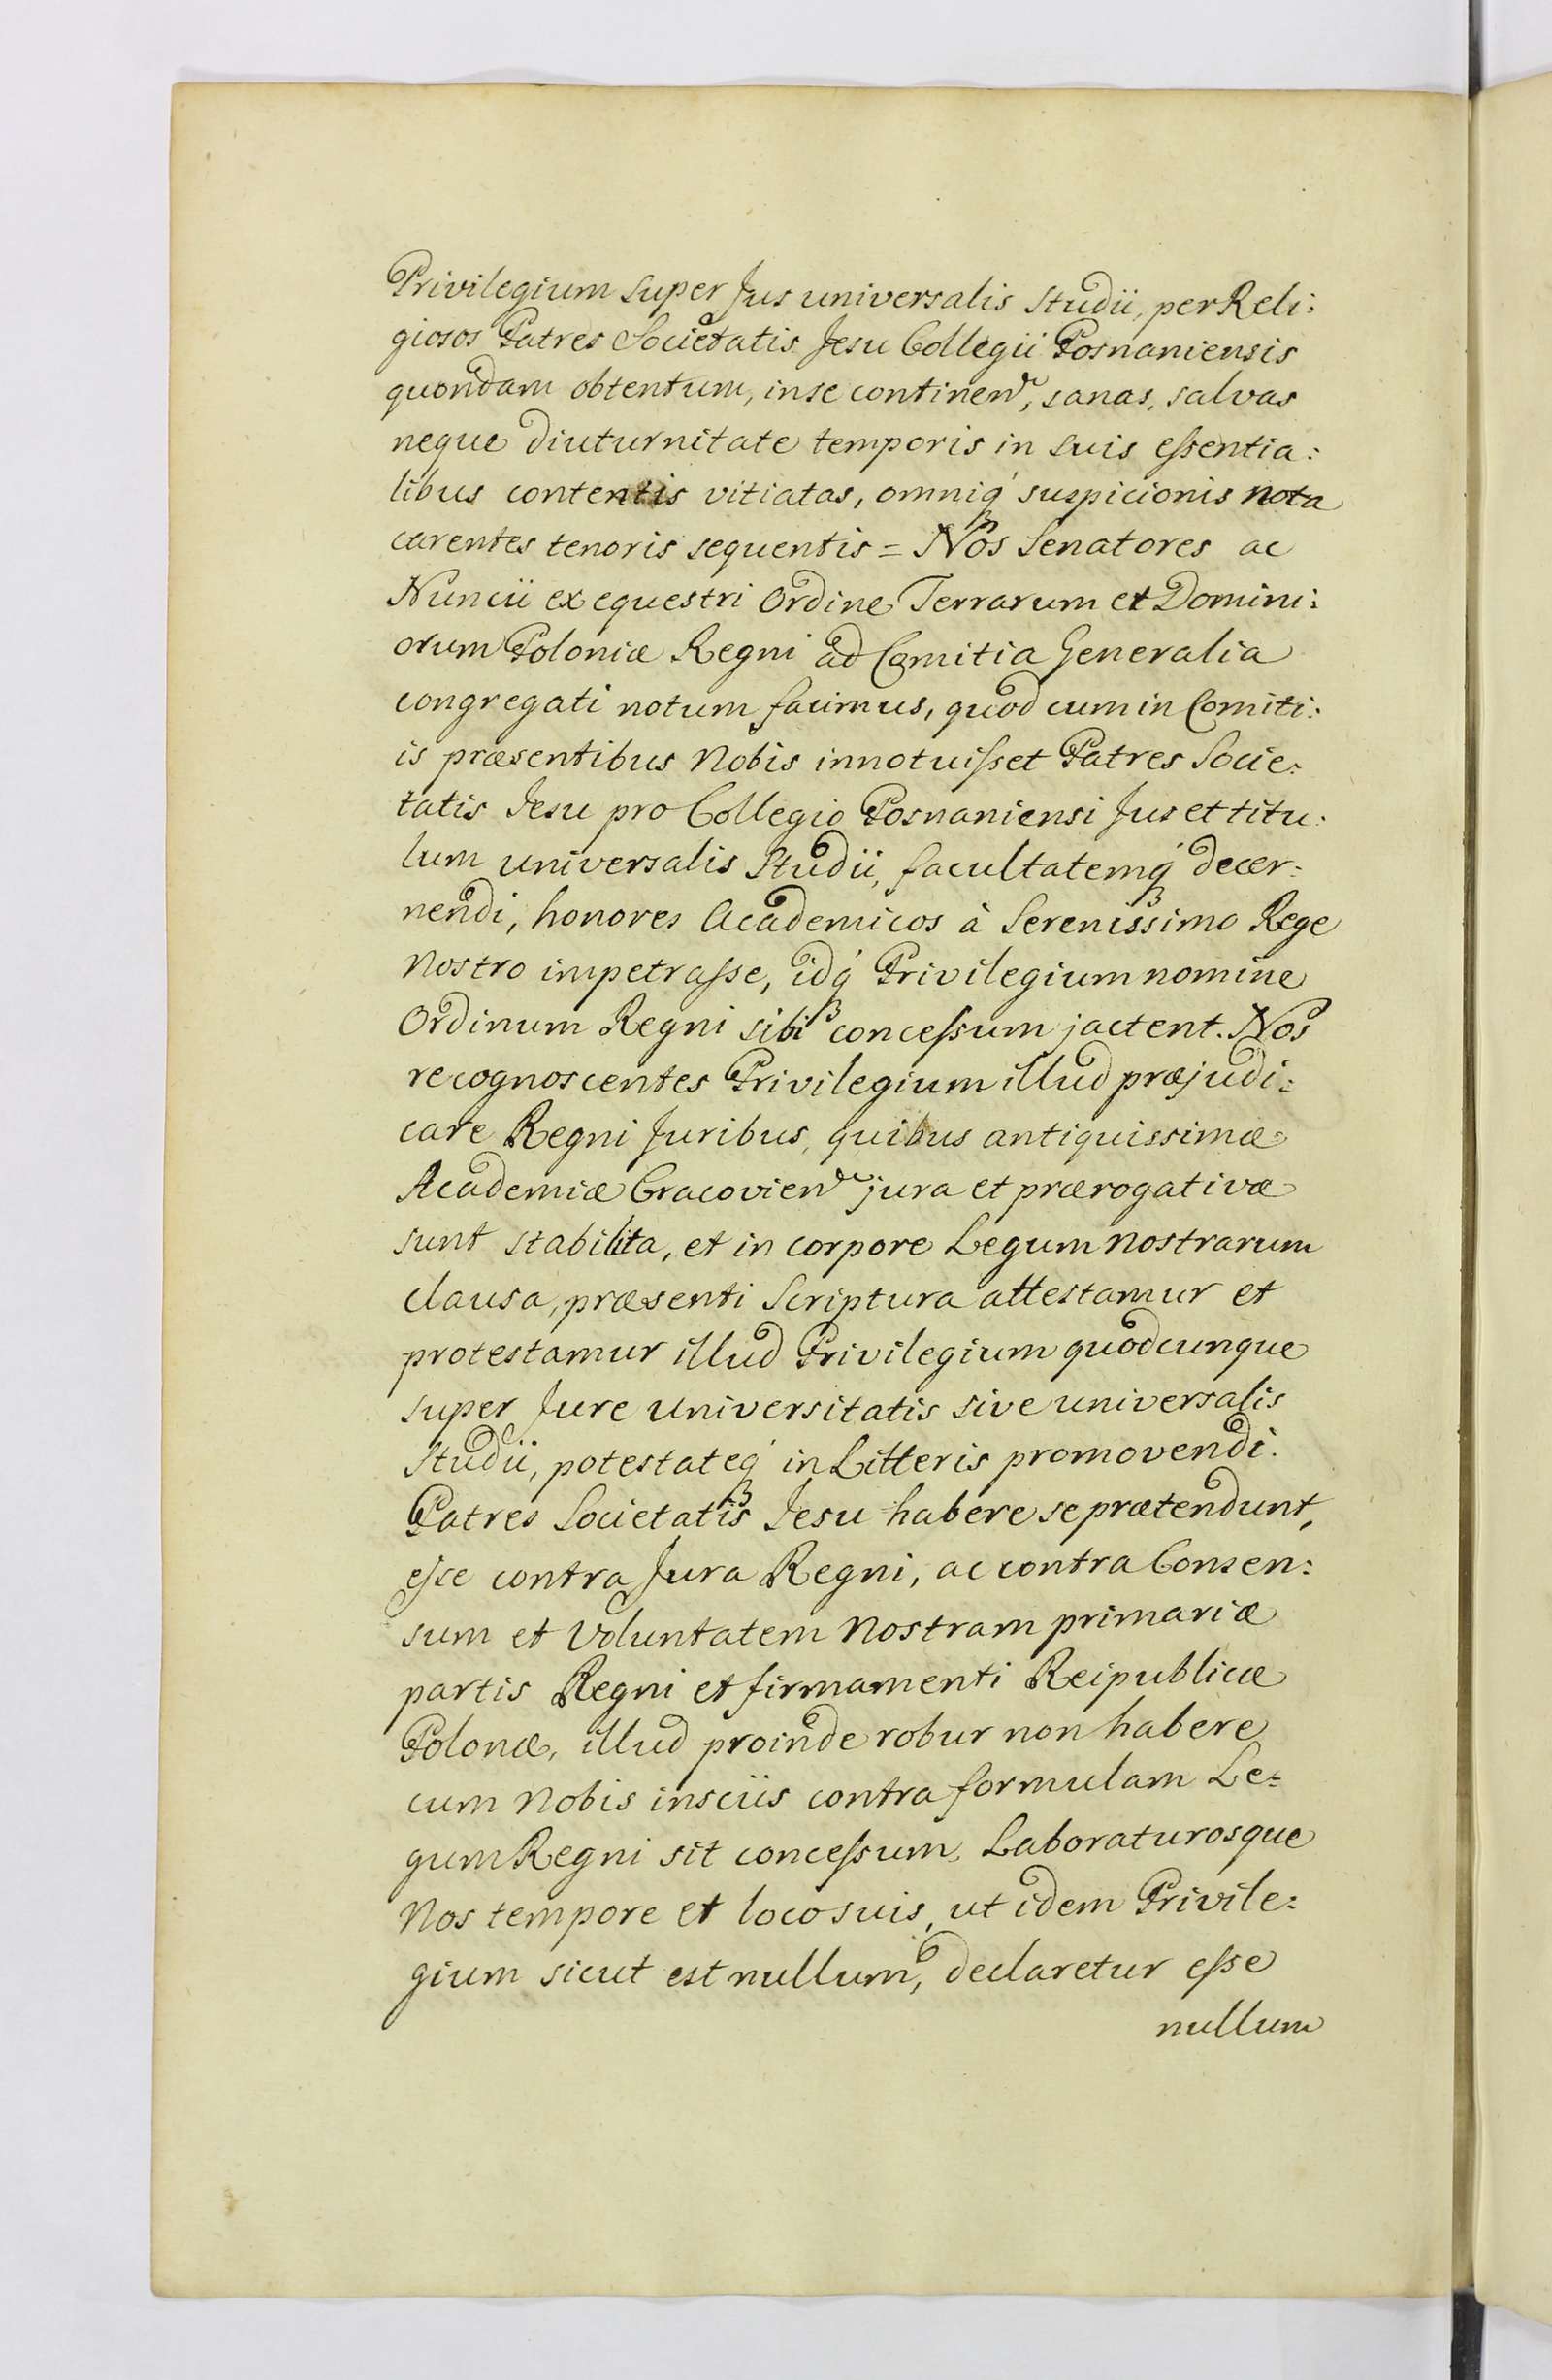 Privilegium super Jus universalis Studii, per Reli:
giosos Patres Societatis Jesu Collegii Posnaniensis
quondam obtentum, in se continen, sanas, salvas
neque diuturnitate temporis in suis essentia:
libus contentis vitiatas, omniq́ suspicionis nota
carentes tenoris sequentis = Nos Senatores ac
Nuncii ex equestri Ordine Terrarum et Domini:
orum Poloniæ Regni ad Comitia Generalia
congregati notum facimus, quod cum in Comiti:
is præsentibus Nobis innotuisset Patres Socie:
tatis Jesu pro Collegio Posnaniensi Jus et titu:
lum universalis Studii, facultatemq́ decer:
nendi, honores Academicos à Serenissimo Rege
Nostro impetrasse, idq́ Privilegium nomine
Ordinum Regni sibi concessum jactent. Nos
recognoscentes Privilegium illud præjudi:
care Regni Juribus, quibus antiquissimæ
Academiæ Cracovien jura et prærogativæ
sunt stabilita, et in corpore Legum nostrarum
clausa, præsenti Scriptura attestamur et
protestamur illud Privilegium quodcunque
super Jure Universitatis sive universalis
Studii, potestateq́ in Litteris promovendi.
Patres Societatis Jesu habere se prætendunt,
esse contra Jura Regni, ac contra Consen:
sum et Voluntatem Nostram primariæ
partis Regni et firmamenti Reipublicæ
Polonæ, illud proinde robur non habere
cum Nobis insciis contra formulam Le:
gum Regni sit concessum, Laboraturosque
Nos tempore et loco suis, ut idem Privile:
gium sicut est nullum, declaretur esse
nullum